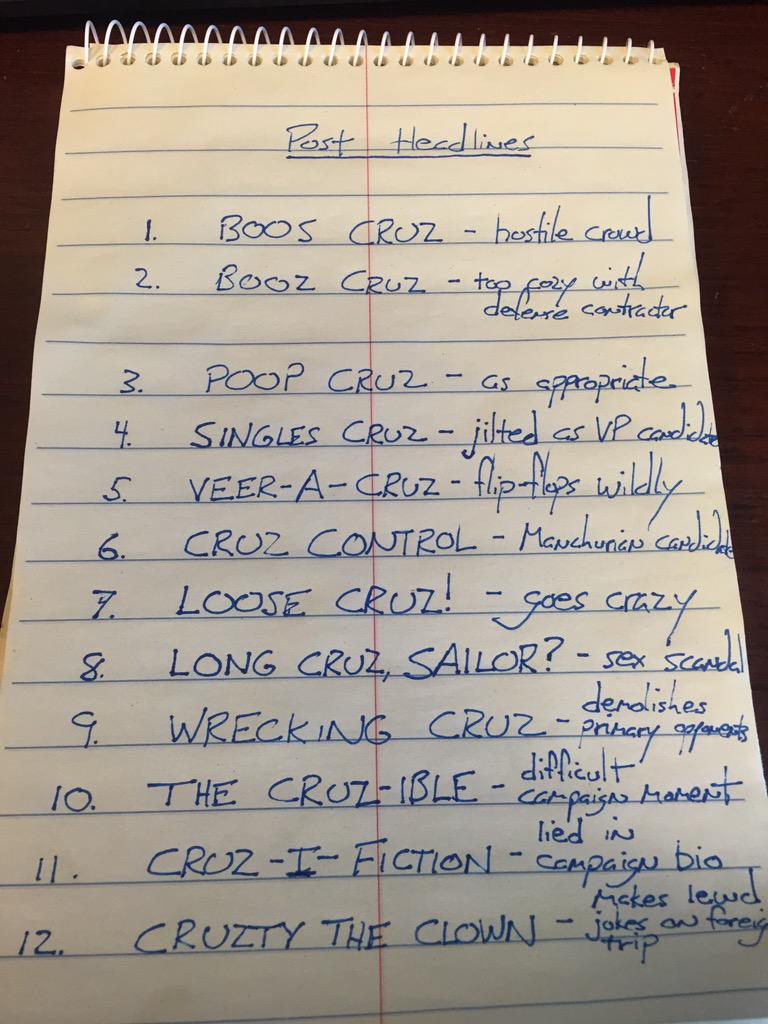 Post Headlines
1. BOOS CRUZ - hostile crowd
2. BOOZ CRUZ - too cozy with
defense contractor
3. POOP CRUZ - as appropriate
4. SINGLES CRUZ - jilted as VP candidate
5. VEER-A-CRUZ - flip-flops wildly
6. CRUZ CONTROL - Manchurian candidate
7. LOOSE CRUZ! - goes crazy
8. LONG CRUZ, SAILOR? - sex scandal
9. WRECKING CRUZ - demolishes
primary opponents
10. THE CRUZ-IBLE - difficult
campaign moment
11. CRUZ-I-FICTION - lied in
campaign bio
12. CRUZTY THE CLOWN - Makes lewd
jokes on foreig
trip